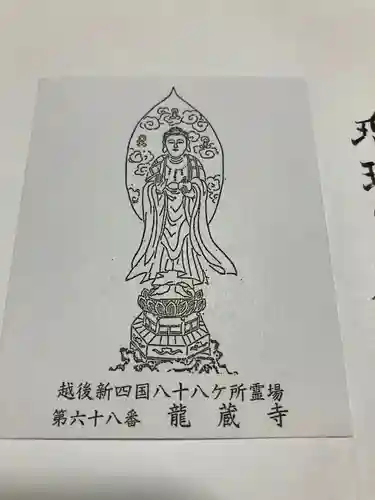 越後新四国八十八ケ所霊場
第六十八番 龍蔵寺